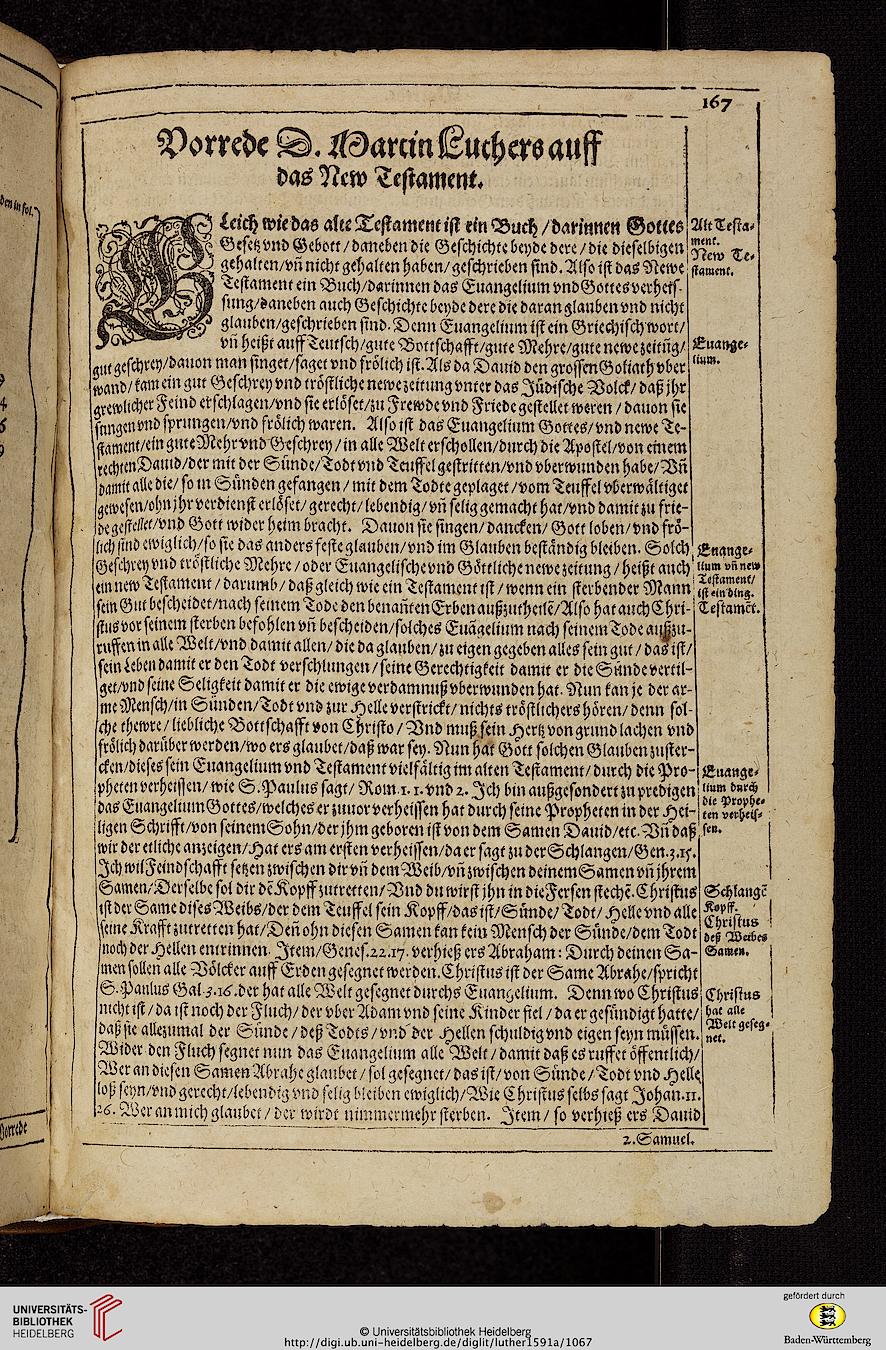 167
Vorrede D. Martin Luthers auff
das New Testament.
GLeich wie das alte Testament ist ein Buch / darinnen Gottes
Gesetz vnd Gebott / daneben die Geschichte beyde dere / die dieselbigen
gehalten/vn̄ nicht gehalten haben/geschrieben sind. Also ist das Newe
Testament ein Buch/darinnen das Euangelium vnd Gottes verheis-
sung/daneben auch Geschichte beyde dere die daran glauben vnd nicht
glauben/geschrieben sind. Denn Euangelium ist ein Griechisch wort/
vn̄ heißt auff Teutsch/gute Bottschafft/gute Mehre/gute newe zeitūg/
gut geschrey/dauon man singet/saget vnd frölich ist. Als da Dauid den grossen Goliath vber
wand/kam ein gut Geschrey vnd tröstliche newe zeitung vnter das Jüdische Volck/daß jhr
grewlicher Feind erschlagen/vnd sie erlöset/zu Frewde vnd Friede gestellet weren / dauon sie
sungen vnd sprungen/vnd frölich waren. Also ist das Euangelium Gottes/vnd newe Te-
stament/ein gute Mehr vnd Geschrey / in alle Welt erschollen/durch die Apostel/von einem
rechten Dauid/der mit der Sünde/Todt vnd Teuffel gestritten/vnd vberwunden habe/Vn̄
damit alle die/so in Sünden gefangen / mit dem Todte geplaget /vom Teuffel vberwältiget
gewesen/ohn jhr verdienst erlöset/gerecht/lebendig/vn̄ selig gemacht hat/vnd damit zu frie-
de gestellet/vnd Gott wider heim bracht. Dauon sie singen/dancken/Gott loben/vnd frö-
lich sind ewiglich/so sie das anders feste glauben/vnd im Glauben beständig bleiben. Solch
Geschrey vnd tröstliche Mehre / oder Euangelische vnd Göttliche newe zeitung / heißt auch
ein new Testament / darumb / daß gleich wie ein Testament ist / wenn ein sterbender Mann
sein Gut bescheidet/nach seinem Tode den benan̄ten Erben außzutheilē/Also hat auch Chri-
stus vor seinem sterben befohlen vn̄ bescheiden/solches Euāgelium nach seinem Tode außzu-
ruffen in alle Welt/vnd damit allen / die da glauben/zu eigen gegeben alles sein gut / das ist/
sein Leben damit er den Todt verschlungen / seine Gerechtigkeit damit er die Sünde vertil-
get/vnd seine Seligkeit damit er die ewige verdamnuß vberwunden hat. Nun kan je der ar-
me Mensch/in Sünden/Todt vnd zur Helle verstrickt/nichts tröstlichers hören/denn sol-
che thewre / liebliche Bottschafft von Christo / Vnd muß sein Hertz von grund lachen vnd
frölich darüber werden/wo ers glaubet/daß war sey. Nun hat Gott solchen Glauben zuster-
cken/dieses sein Euangelium vnd Testament vielfältig im alten Testament/durch die Pro-
pheten verheissen/wie S. Paulus sagt/ Rom. 1. 1. vnd 2. Ich bin außgesondert zu predigen
das Euangelium Gottes/welches er zuuor verheissen hat durch seine Propheten in der Hei-
ligen Schrifft/von seinem Sohn/der jhm geboren ist von dem Samen Dauid/etc. Vn̄ daß
wir der etliche anzeigen/Hat ers am ersten verheissen/da er sagt zu der Schlangen/Gen.3.15.
Ich wil Feindschafft setzen zwischen dir vn̄ dem Weib/vn̄ zwischen deinem Samen vn̄ jhrem
Samen/Derselbe sol dir dē Kopff zutretten/Vnd du wirst jhn in die Fersen stechē. Christus
ist der Same dises Weibs/der dem Teuffel sein Kopff/das ist/Sünde/ Todt/ Helle vnd alle
seine Krafft zutretten hat/Den̄ ohn diesen Samen kan kein Mensch der Sünde/dem Todt
noch der Hellen entrinnen. Item/Genes.22.17. verhieß ers Abraham: Durch deinen Sa-
men sollen alle Völcker auff Erden gesegnet werden. Christus ist der Same Abrahe/spricht
S. Paulus Gal.3.16. der hat alle Welt gesegnet durchs Euangelium. Denn wo Christus
nicht ist / da ist noch der Fluch/der vber Adam vnd seine Kinder fiel / da er gesündigt hatte/
daß sie allezumal der Sünde / deß Todts / vnd der Hellen schuldig vnd eigen seyn müssen.
Wider den Fluch segnet nun das Euangelium alle Welt / damit daß es ruffet öffentlich/
Wer an diesen Samen Abrahe glaubet / sol gesegnet/das ist/von Sünde / Todt vnd Helle
loß seyn/vnd gerecht/lebendig vnd selig bleiben ewiglich/Wie Christus selbs sagt Johan.11.
26. Wer an mich glaubet / der wirdt nimmermehr sterben. Item / so verhieß ers Dauid
2. Samuel.
Alt Testa-
ment.
New Te-
stament.
Euange-
lium.
Euange-
lium vn̄ new
Testament/
ist ein ding.
Testamēt.
Euange-
lium durch
die Prophe-
ten verheis-
sen.
Schlangē
Kopff.
Christus
deß Weibes
Samen.
Christus
hat alle
Welt geseg-
net.
den in fol.
Vorrede
UNIVERSITÄTS-
BIBLIOTHEK
HEIDELBERG
© Universitätsbibliothek Heidelberg
http://digi.ub.uni-heidelberg.de/diglit/luther1591a/1067
gefördert durch
Baden-Württemberg